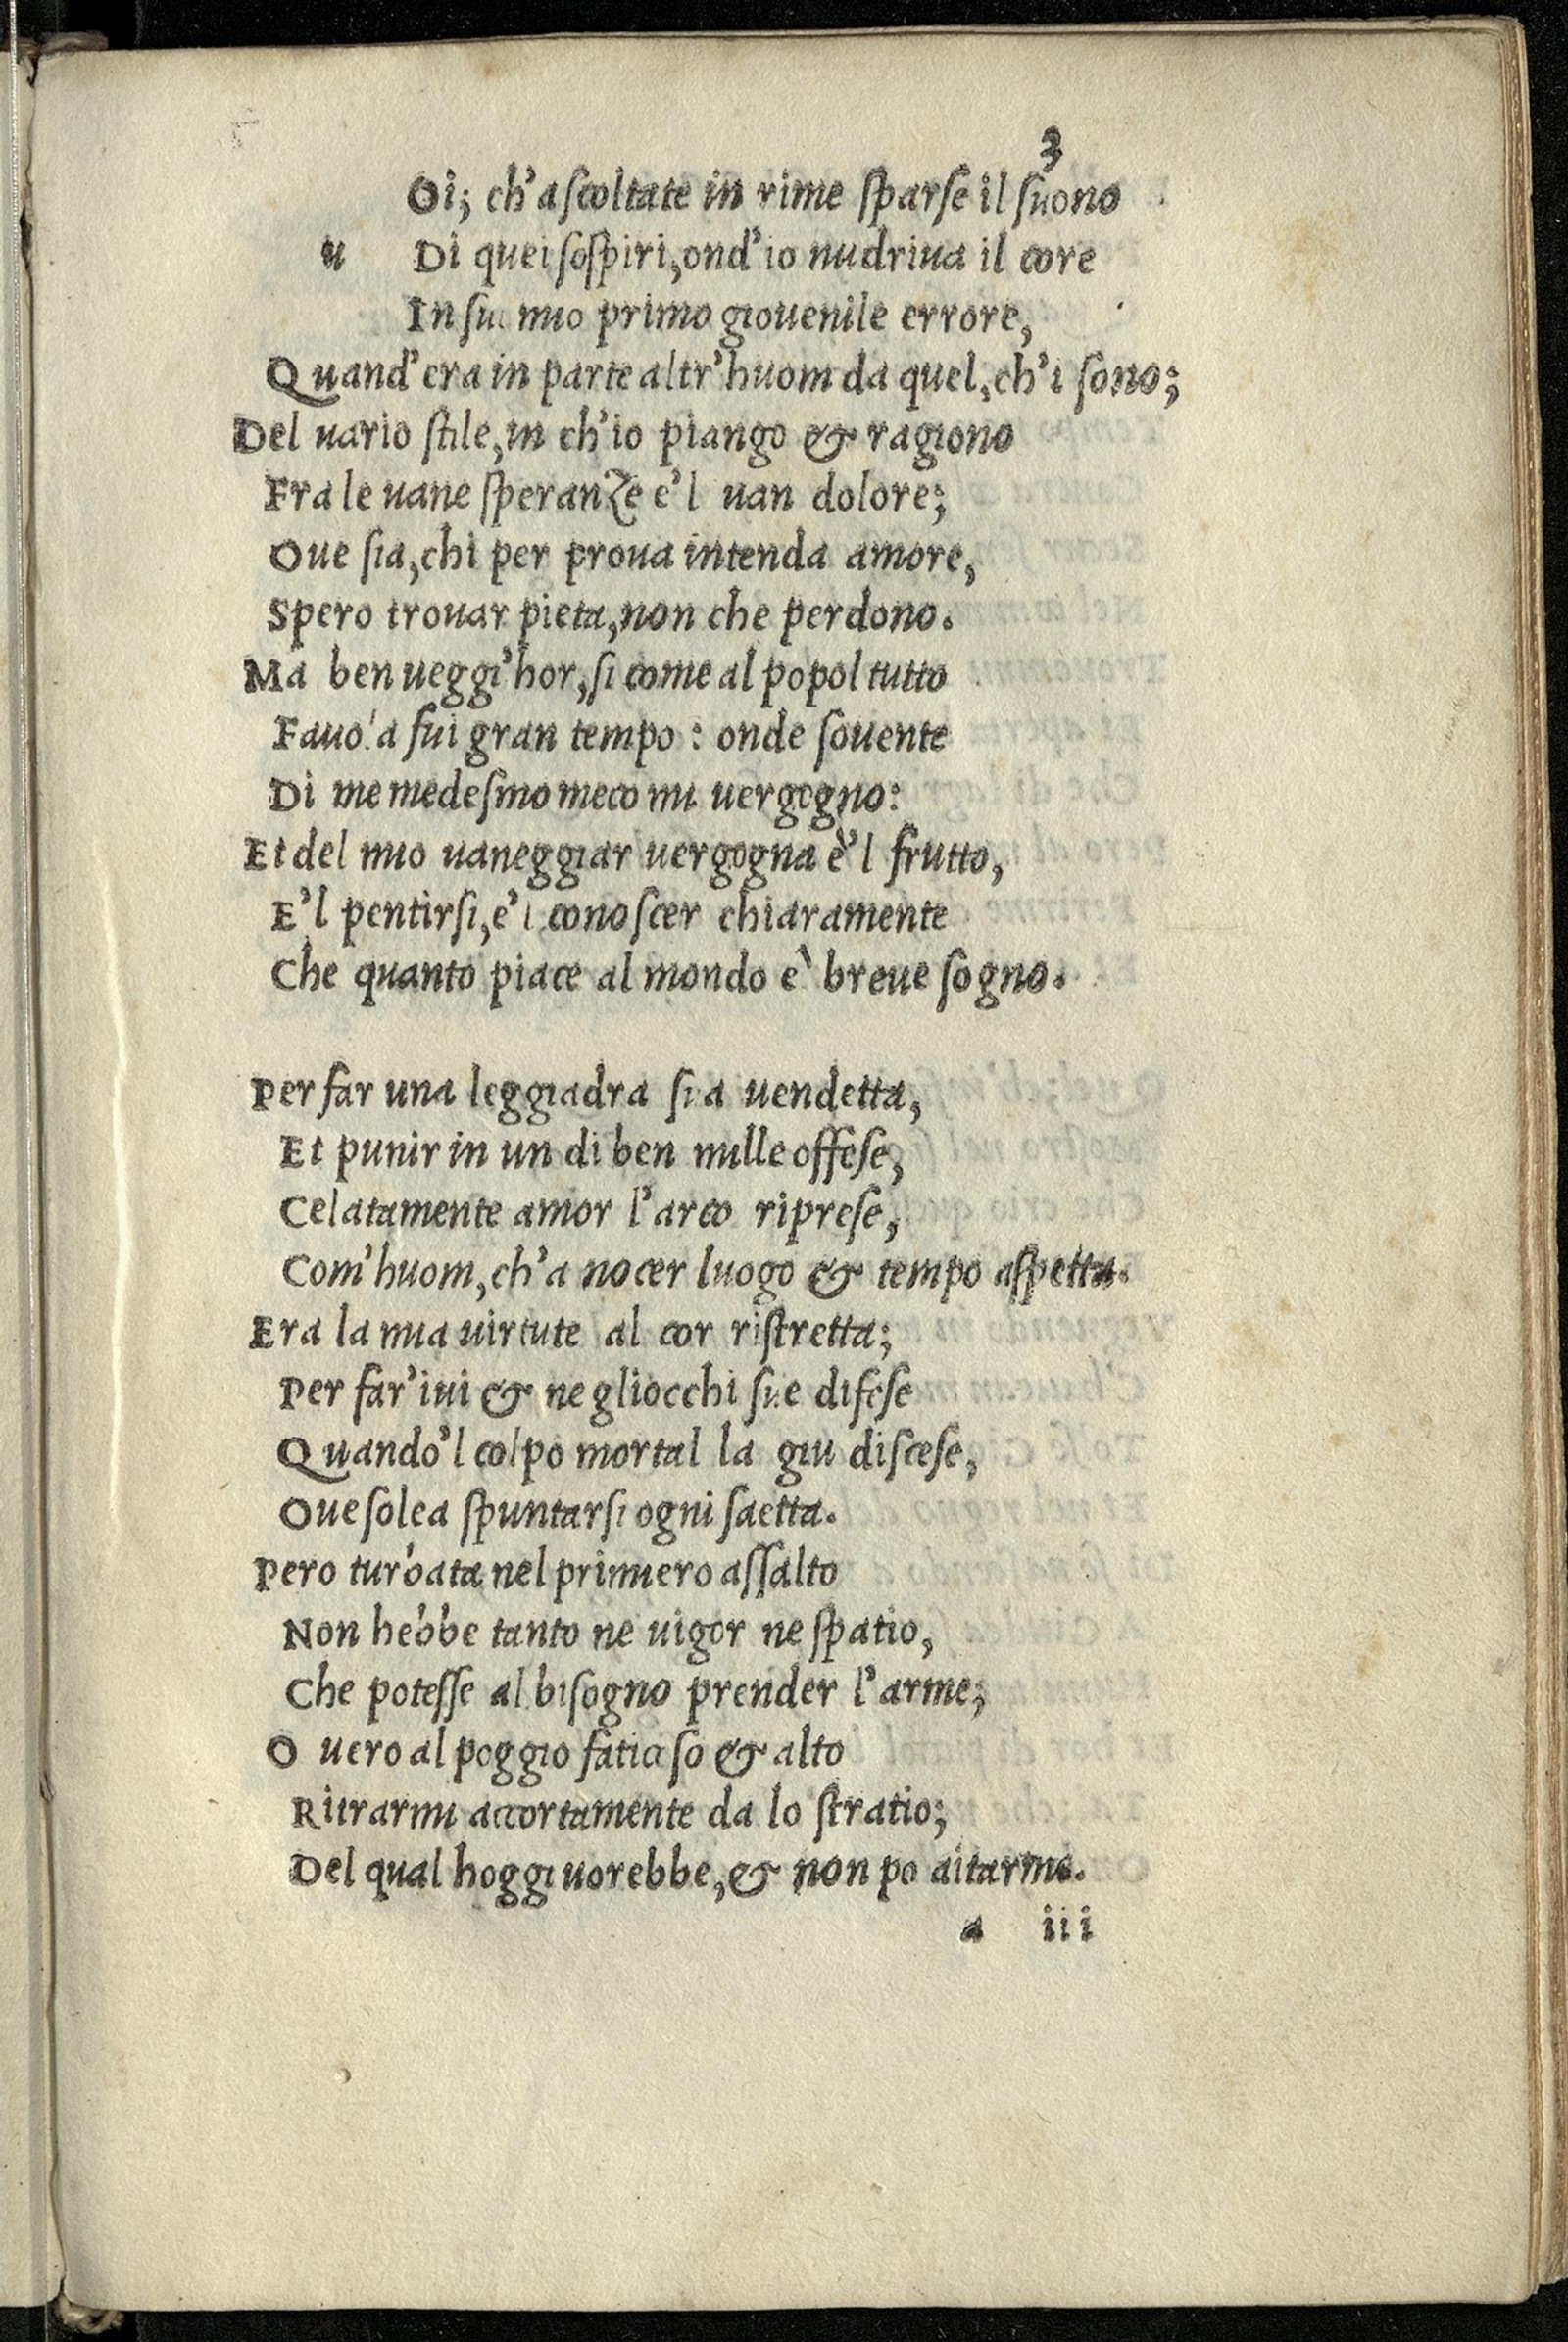 3
Oi; ch'ascoltate in rime sparse il suono
u Di quei sospiri, ond'io nudriua il core
In sul mio primo giouenile errore,
Quand'era in parte altr'huom da quel, ch'i sono;
Del uario stile, in ch'io piango & ragiono
Fra le uane speranze e'l uan dolore;
Oue sia, chi per proua intenda amore,
Spero trouar pieta, non che perdono.
Ma ben ueggi'hor, si come al popol tutto
Fauola fui gran tempo: onde souente
Di me medesmo meco mi uergogno:
Et del mio uaneggiar uergogna è'l frutto,
E'l pentirsi, e'l conoscer chiaramente
Che quanto piace al mondo è breue sogno.
Per far una leggiadra sua uendetta,
Et punir in un di ben mille offese,
Celatamente amor l'arco riprese,
Com'huom, ch'a nocer luogo & tempo aspetta.
Era la mia uirtute al cor ristretta;
Per far'iui & ne gliocchi sue difese
Quando'l colpo mortal la giu discese,
Oue solea spuntarsi ogni saetta.
Pero turbata nel primiero assalto
Non hebbe tanto ne uigor ne spatio,
Che potesse al bisogno prender l'arme;
O uero al poggio faticoso & alto
Ritrarmi accortamente da lo stratio;
Del qual hoggi uorebbe, & non po aitarme.
a iii